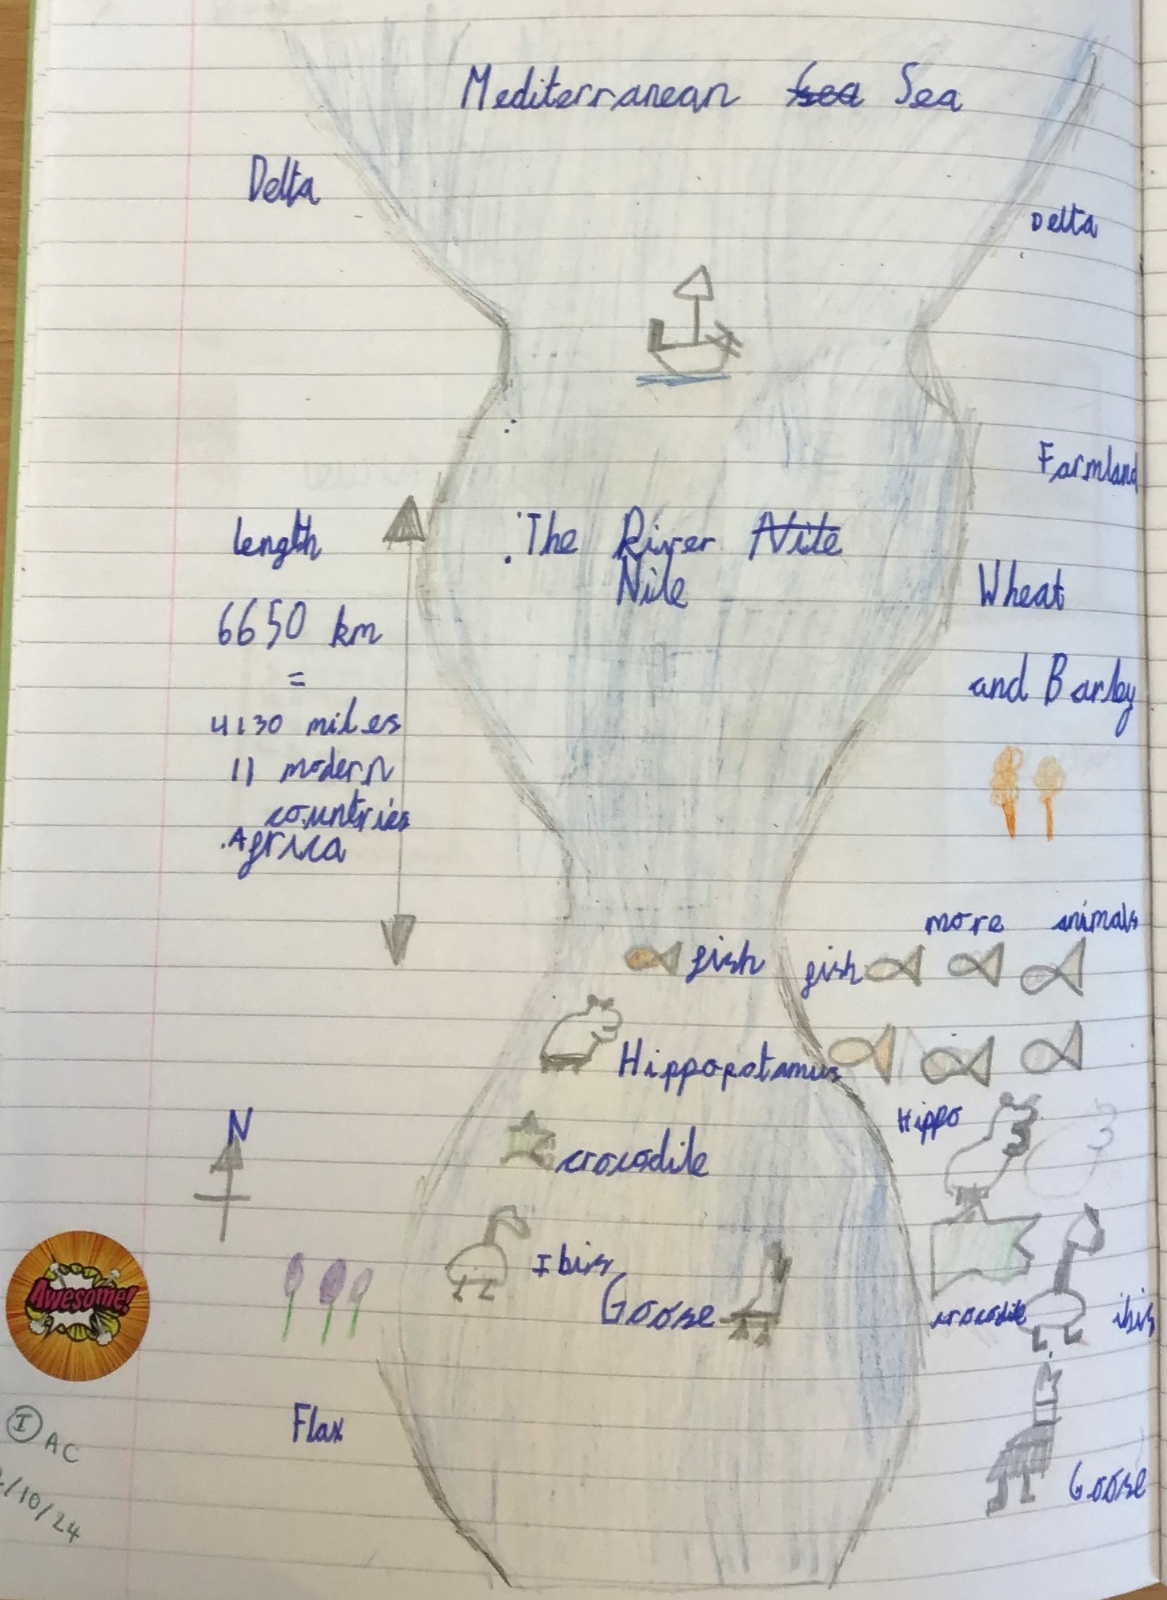 Mediterranean sea Sea
Delta
Delta
Farmland
length
The River Nile
Nile
6650 km
=
4130 miles
11 modern
countries
Africa
Wheat
and Barley
more animals
fish
fish
Hippopotamus
Hippo
N
crocodile
Ibis
Goose
crocodile
ibis
Awesome!
Flax
Goose
I AC
/10/24